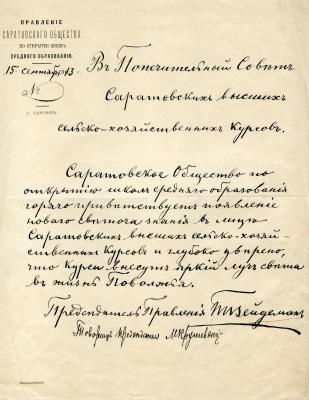 ПРАВЛЕНІЕ
САРАТОВСКАГО ОБЩЕСТВА
ПО ОТКРЫТІЮ ШКОЛЪ
СРЕДНЯГО ОБРАЗОВАНІЯ.
15 сентября 13
№
Г. САРАТОВЪ.
Въ Попечительный Совѣтъ
Саратовскихъ высшихъ
сельско-хозяйственныхъ Курсовъ.
Саратовское Общество по
открытію школъ средняго образованія
горячо привѣтствуетъ появленіе
новаго свѣточа знанія въ лицѣ
Саратовскихъ высшихъ сельско-хозяй-
ственныхъ Курсовъ и глубоко увѣрено,
что Курсы внесутъ яркій лучъ свѣта
въ жизнь Поволжья.
Предсѣдатель Правленія
Товарищ Предсѣдателя